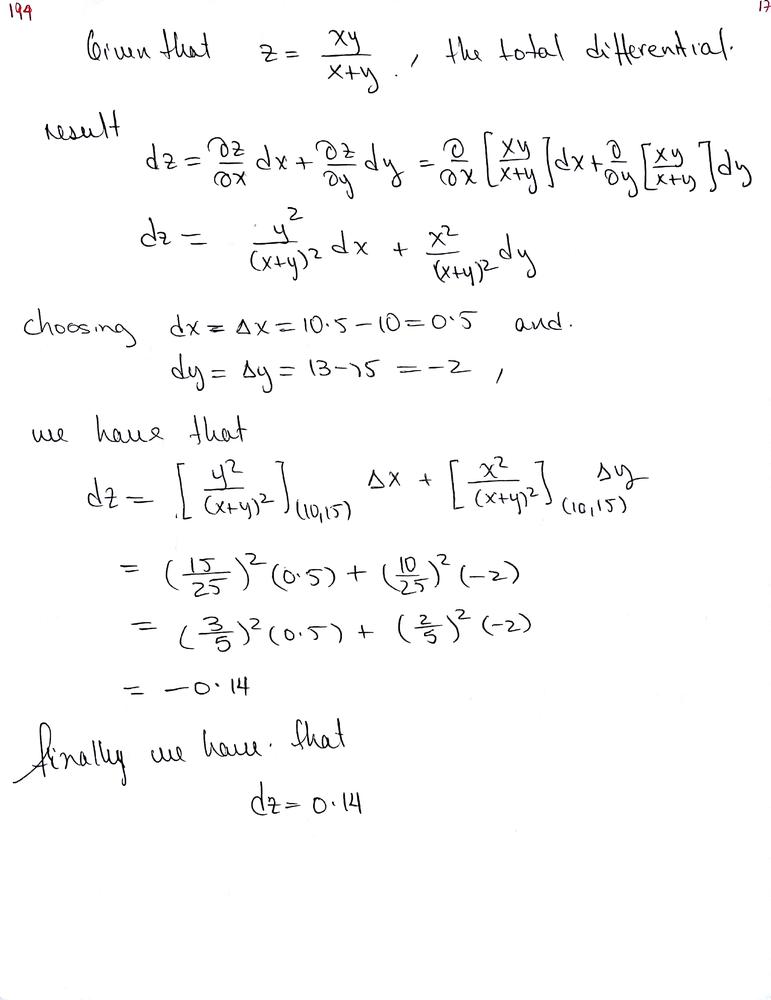 194
17
Given that z = xy/x+y . , the total differential.
result
dz = ∂z/∂x dx + ∂z/∂y dy = ∂/∂x [xy/x+y] dx + ∂/∂y [xy/x+y] dy
dz = y²/(x+y)² dx + x²/(x+y)² dy
choosing dx = Δx = 10.5 − 10 = 0.5 and.
dy = Δy = 13 − 15 = −2 ,
we have that
dz = [y²/(x+y)²](10,15) Δx + [x²/(x+y)²](10,15) Δy
= (15/25)² (0.5) + (10/25)² (−2)
= (3/5)² (0.5) + (2/5)² (−2)
= −0.14
finally we have. that
dz = 0.14